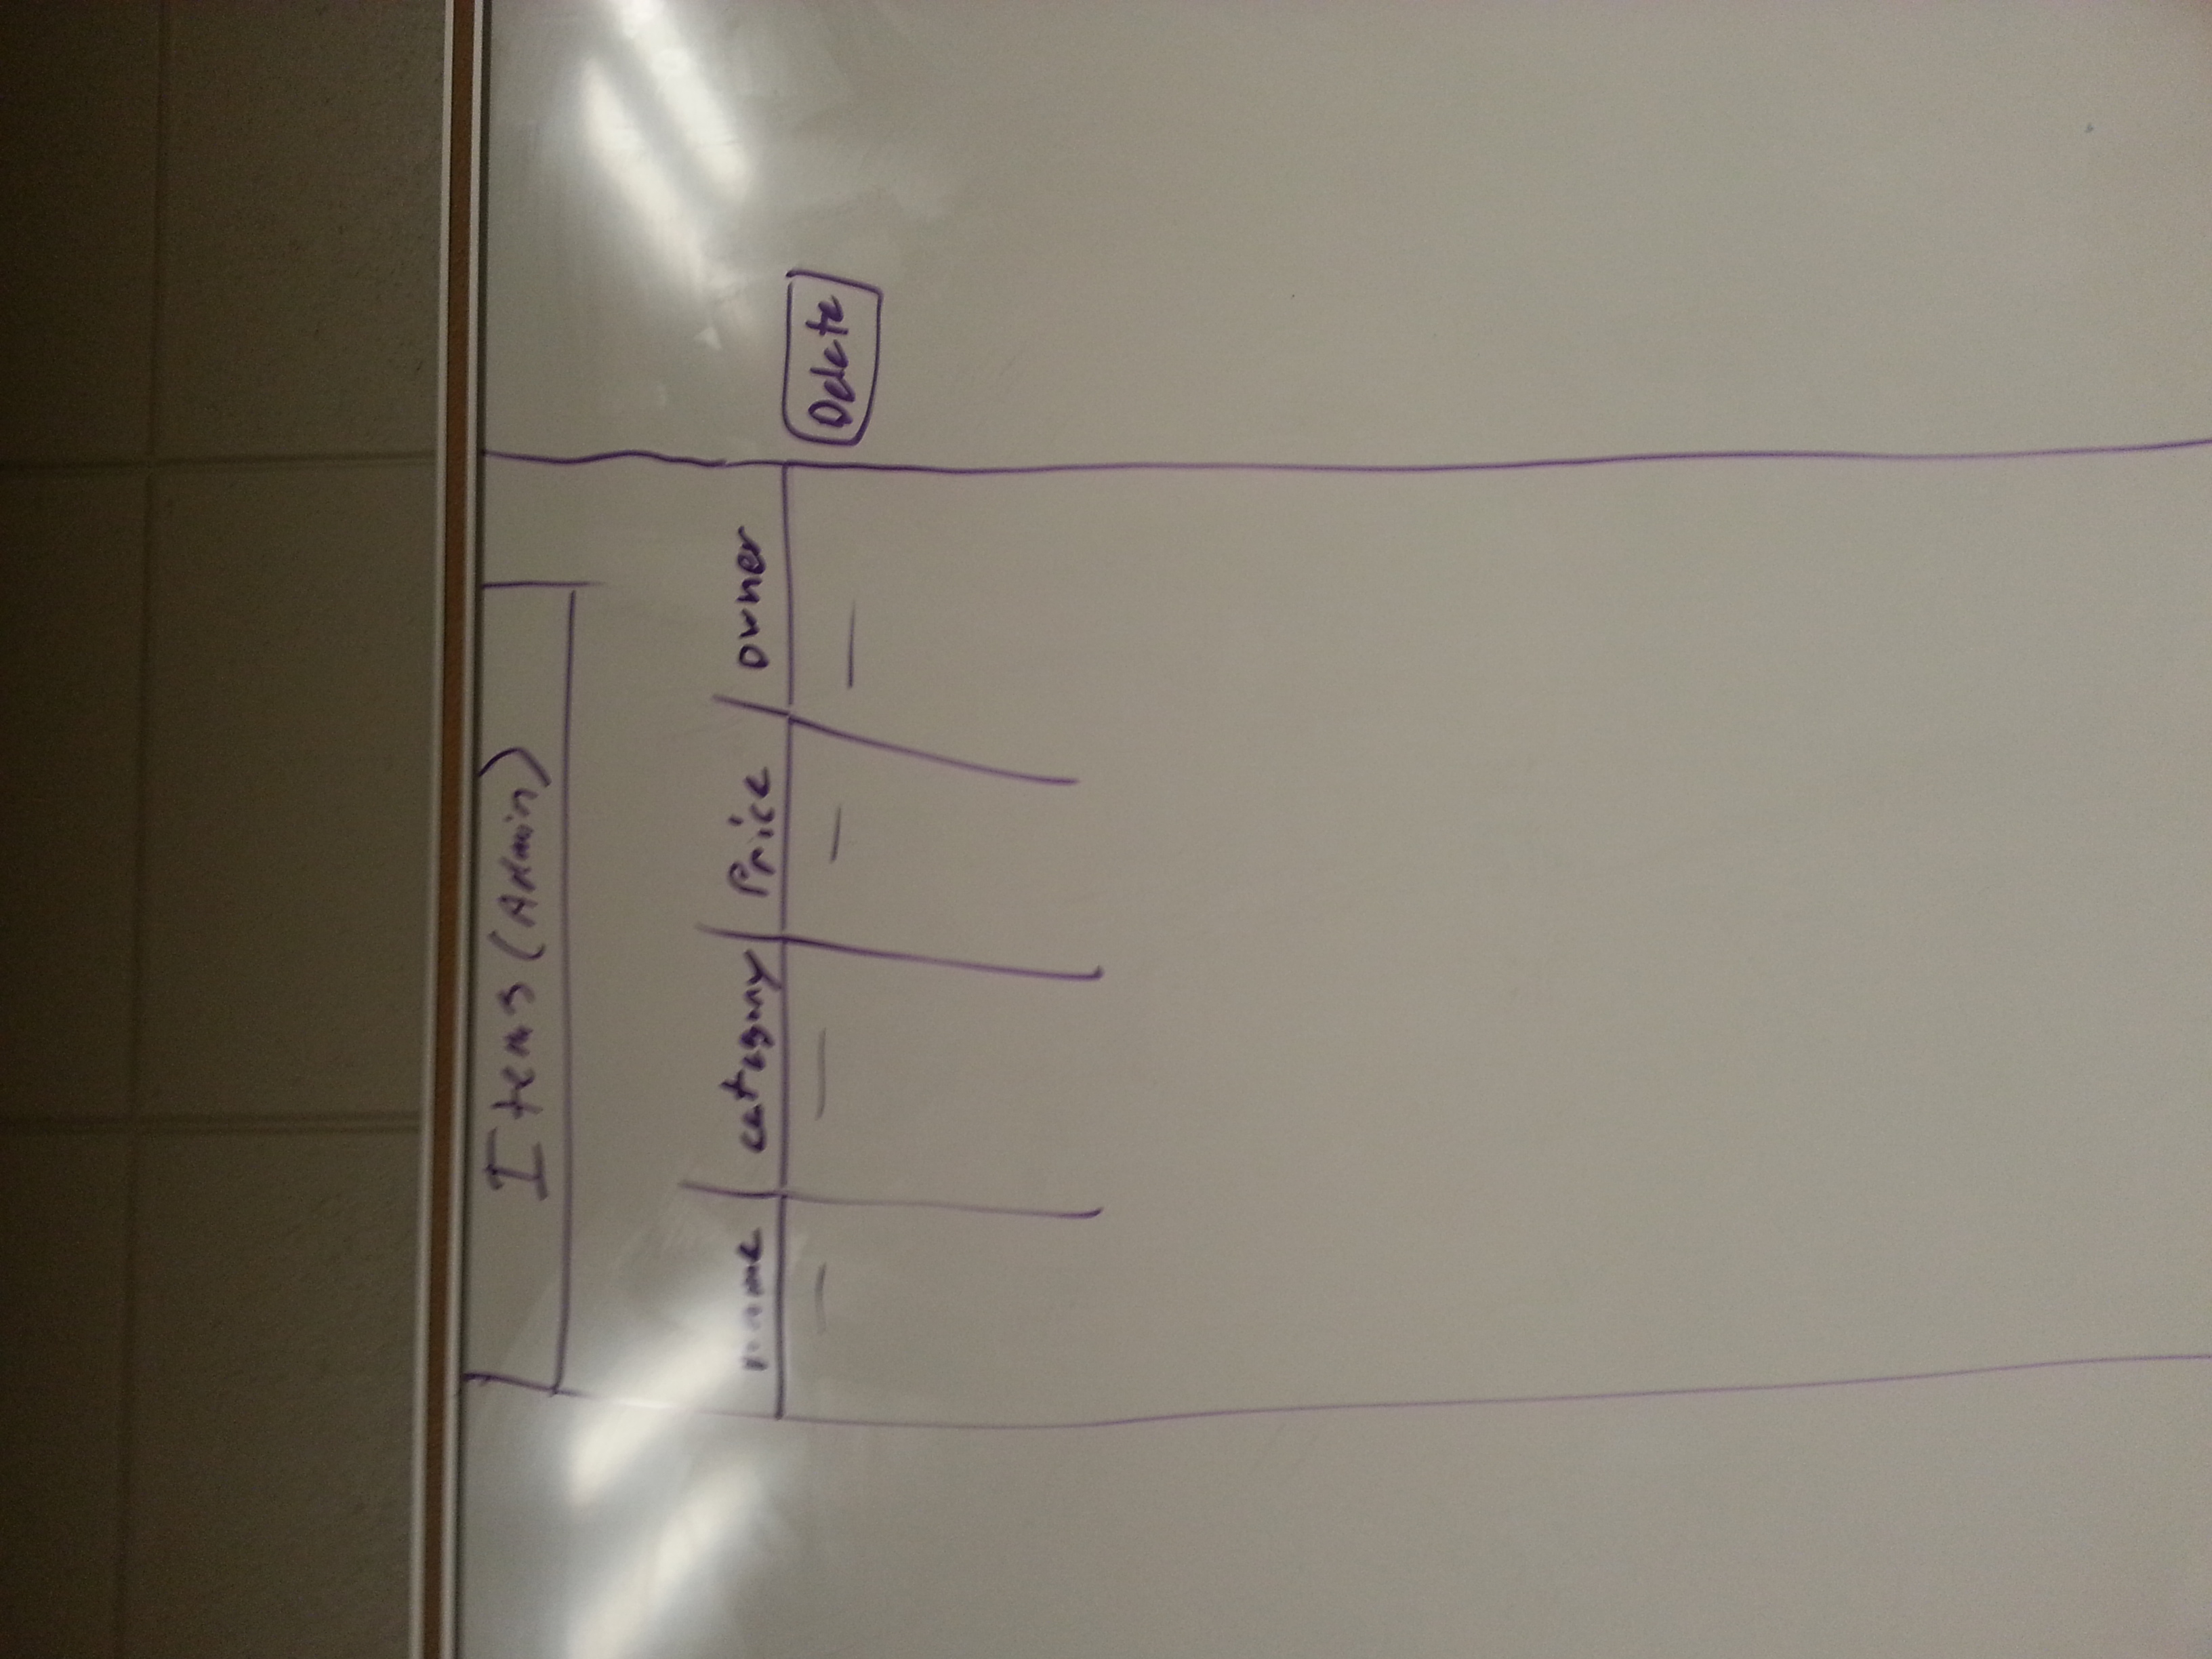 Items (Admin)
name category Price owner
Delete